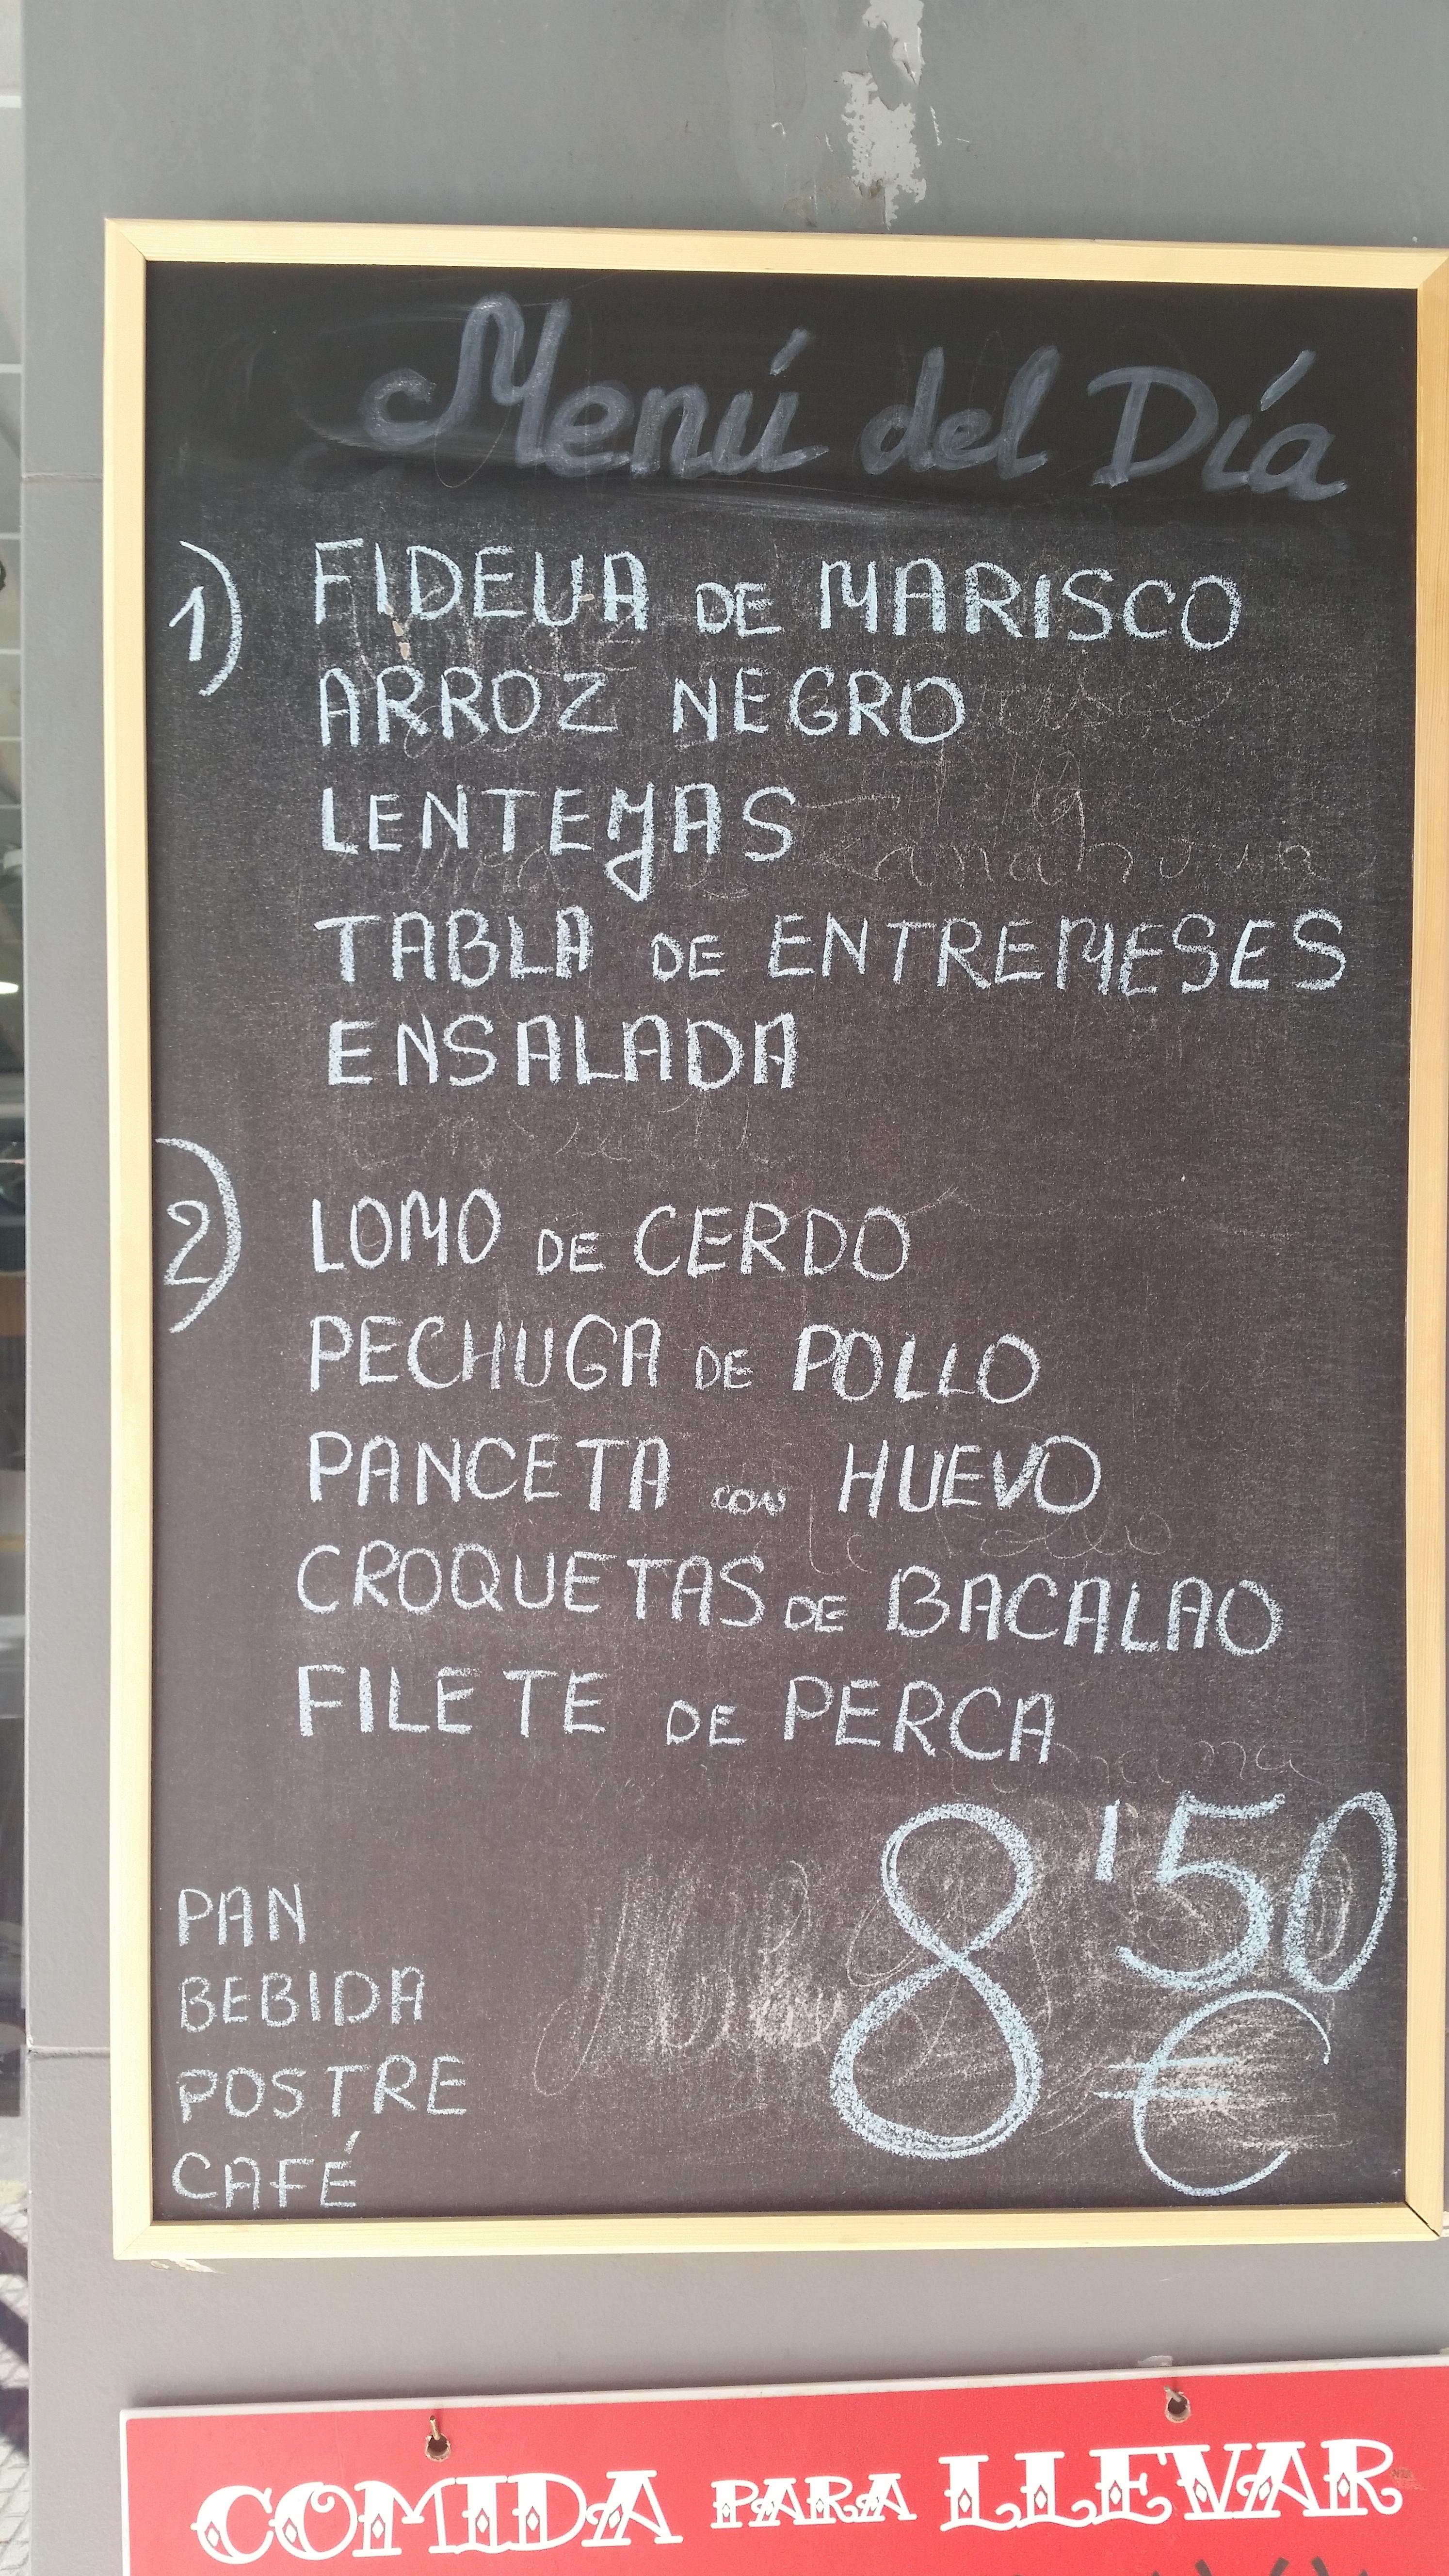 Menú del Día
1) FIDEUA DE MARISCO
ARROZ NEGRO
LENTEJAS
TABLA DE ENTREMESES
ENSALADA
2) LOMO DE CERDO
PECHUGA DE POLLO
PANCETA CON HUEVO
CROQUETAS DE BACALAO
FILETE DE PERCA
8'50 €
PAN
BEBIDA
POSTRE
CAFÉ
COMIDA PARA LLEVAR